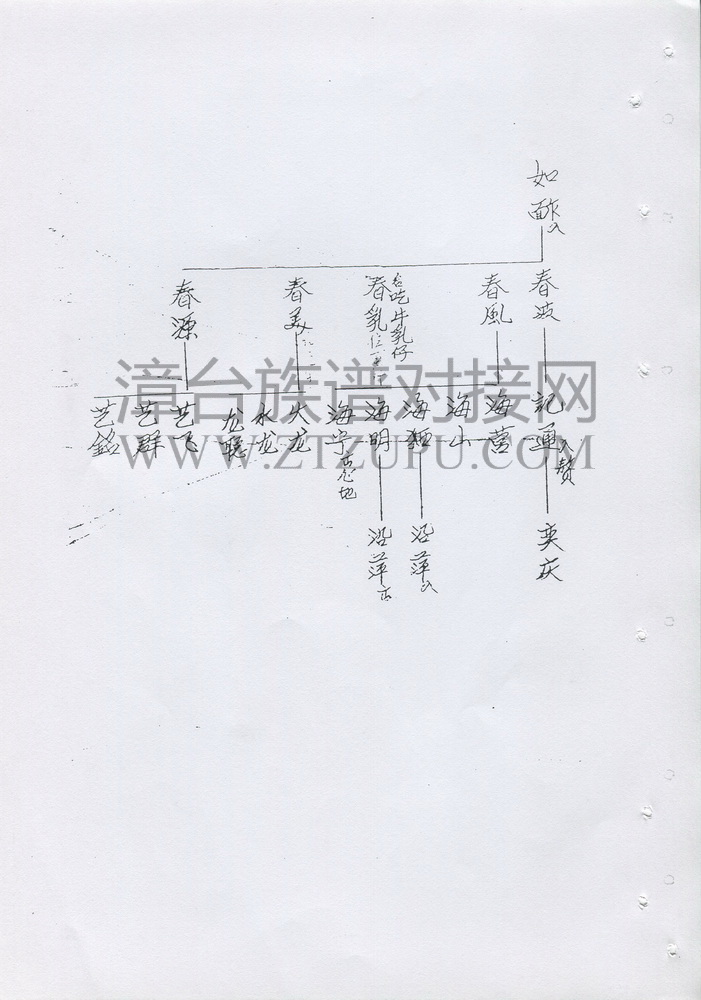 如
春波
春風
名吃牛乳仔
春乳
春美
春源
記運 入贅
海营
海山
海
海明
海宁
火龙
水龙
龙聪
艺飞
艺群
艺銘
奕庆
沿萍
沿萍
漳台族谱对接网
WWW.ZTZUPU.COM